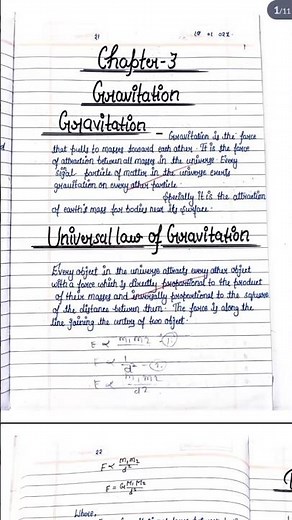 1/11
21
Chapter-3
Gravitation
Gravitation - Gravitation is the force
that pulls to masses toward each other. It is the force
of attraction between all masses in the universe Every
particle of matter in the universe exerts
gravitation on every other particle
It is the attraction
of earth's mass for bodies near its surface.
Universal law of Gravitation
Every object in the universe attracts every other object
with a force which is directly proportional to the product
of their masses and inversally proportional to the square
of the distance between them. The force is along the
line joining the centres of two object.
F ∝ m1 m2 - 1.
F ∝ 1/d² - 2.
F ∝ m1 m2/d2
22
F ∝ M1 M2/d²
F = G M1 M2/d²
Where,